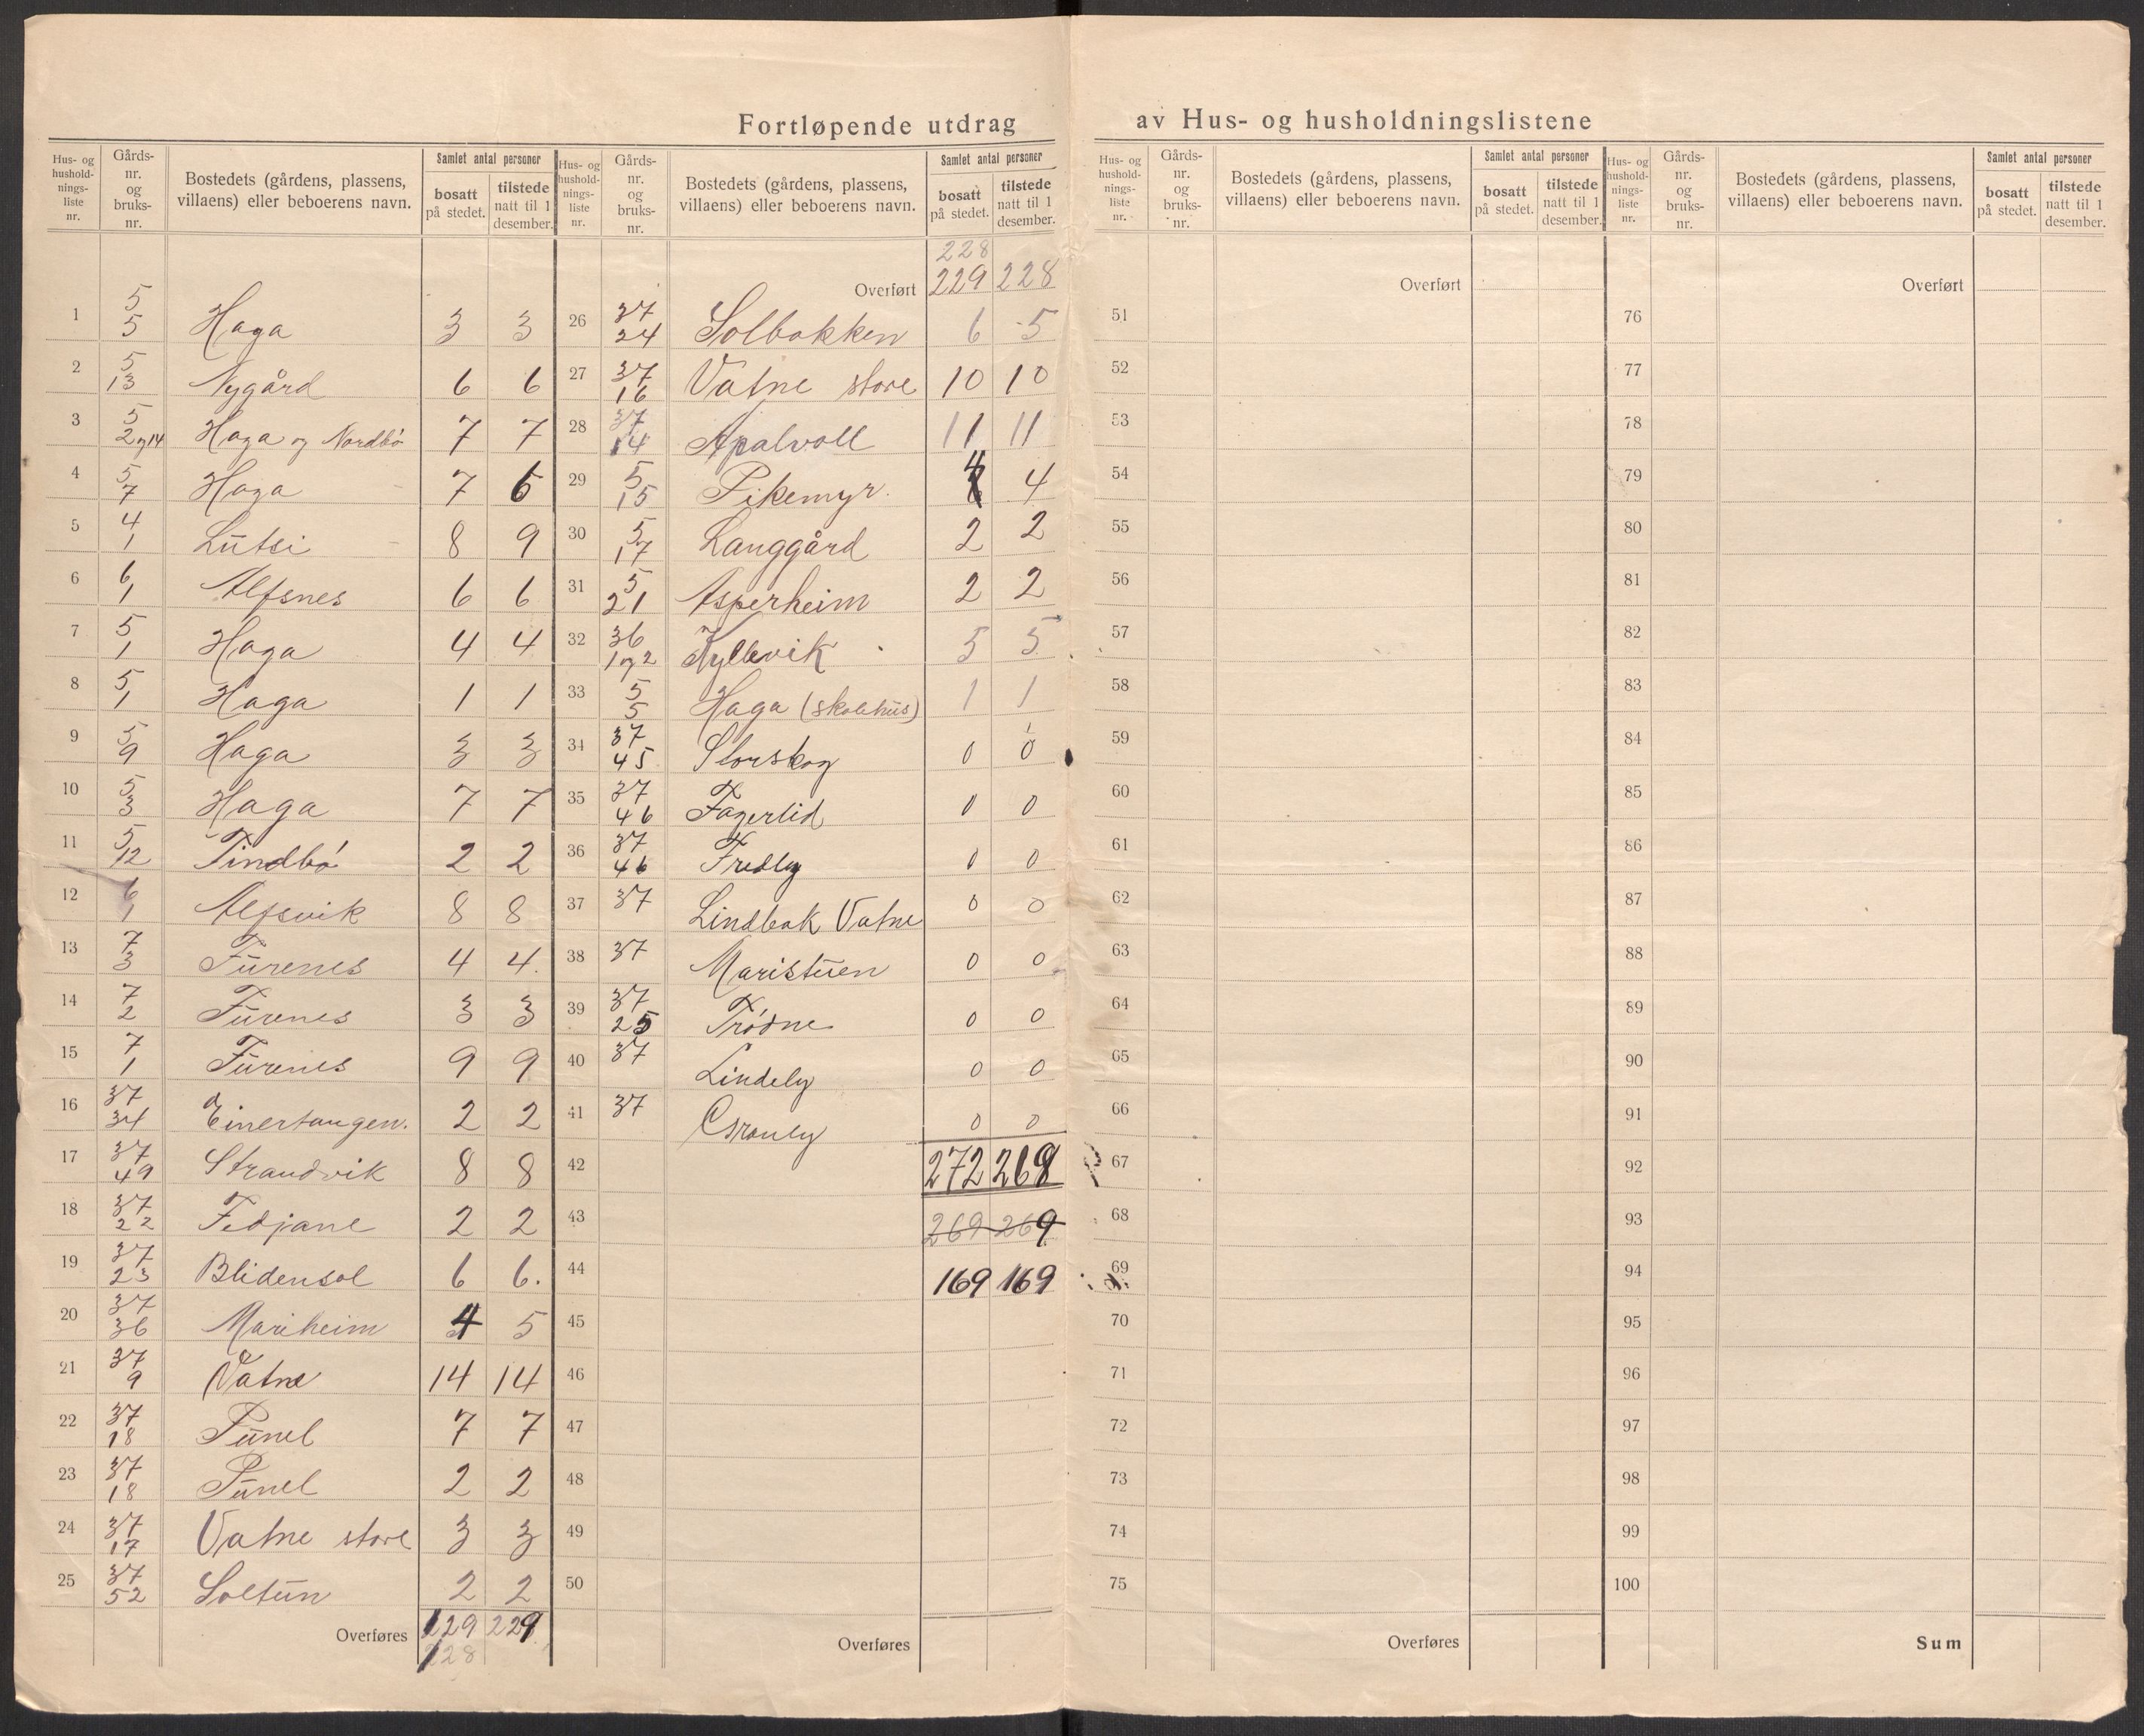 Fortløpende utdrag av Hus- og husholdningslistene
Hus- og husholdningsliste nr. | Gårdsnr. og bruksnr. | Bostedets (gårdens, plassens, villaens) eller beboerens navn. | Samlet antal personer: bosatt på stedet. | tilstede natt til 1 desember.
1 5/5 Haga 3 3
2 5/13 Nygård 6 6
3 5/2 og 14 Haga og Nordbø 7 7
4 5/7 Haga 7 6
5 4/1 Lutsi 8 9
6 6/1 Alfsnes 6 6
7 5/1 Haga 4 4
8 5/1 Haga 1 1
9 5/9 Haga 3 3
10 5/3 Haga 7 7
11 5/12 Tindbø 2 2
12 6/1 Alfsvik 8 8
13 7/3 Furenes 4 4.
14 7/2 Furenes 3 3
15 7/1 Furenes 9 9
16 37/34 Einertangen. 2 2
17 37/49 Strandvik 8 8
18 37/22 Fedjane 2 2
19 37/23 Blidensol 6 6.
20 37/36 Mariheim 4 5
21 37/9 Vatne 14 14
22 37/18 Punel 7 7
23 37/18 Punel 2 2
24 37/17 Vatne store 3 3
25 37/52 Soltun 2 2
Overføres 129 229
128
Hus- og husholdningsliste nr. | Gårdsnr. og bruksnr. | Bostedets (gårdens, plassens, villaens) eller beboerens navn. | Samlet antal personer: bosatt på stedet. | tilstede natt til 1 desember.
228
Overført 229 228
26 37/24 Solbakken 6 5
27 37/16 Vatne store 10 10
28 37/14 Apalvoll 11 11
29 5/15 Pikemyr. 4 4
30 5/17 Langgård 2 2
31 5/21 Asperheim 2 2
32 36/1 og 2 Kyllevik 5 5
33 5/5 Haga (skolehus) 1 1
34 37/45 Storskog 0 0
35 37/46 Fagerlid 0 0
36 37/46 Fredly 0 0
37 37 Lindbak Vatne 0 0
38 37 Maristuen 0 0
39 37/25 Trødne 0 0
40 37 Lindely 0 0
41 37 0 0
42 272 268
43 269 269
44 169 169
45
46
47
48
49
50
Overføres
Hus- og husholdningsliste nr. | Gårdsnr. og bruksnr. | Bostedets (gårdens, plassens, villaens) eller beboerens navn. | Samlet antal personer: bosatt på stedet. | tilstede natt til 1 desember.
Overført
51
52
53
54
55
56
57
58
59
60
61
62
63
64
65
66
67
68
69
70
71
72
73
74
75
Overføres
Hus- og husholdningsliste nr. | Gårdsnr. og bruksnr. | Bostedets (gårdens, plassens, villaens) eller beboerens navn. | Samlet antal personer: bosatt på stedet. | tilstede natt til 1 desember.
Overført
76
77
78
79
80
81
82
83
84
85
86
87
88
89
90
91
92
93
94
95
96
97
98
99
100
Sum